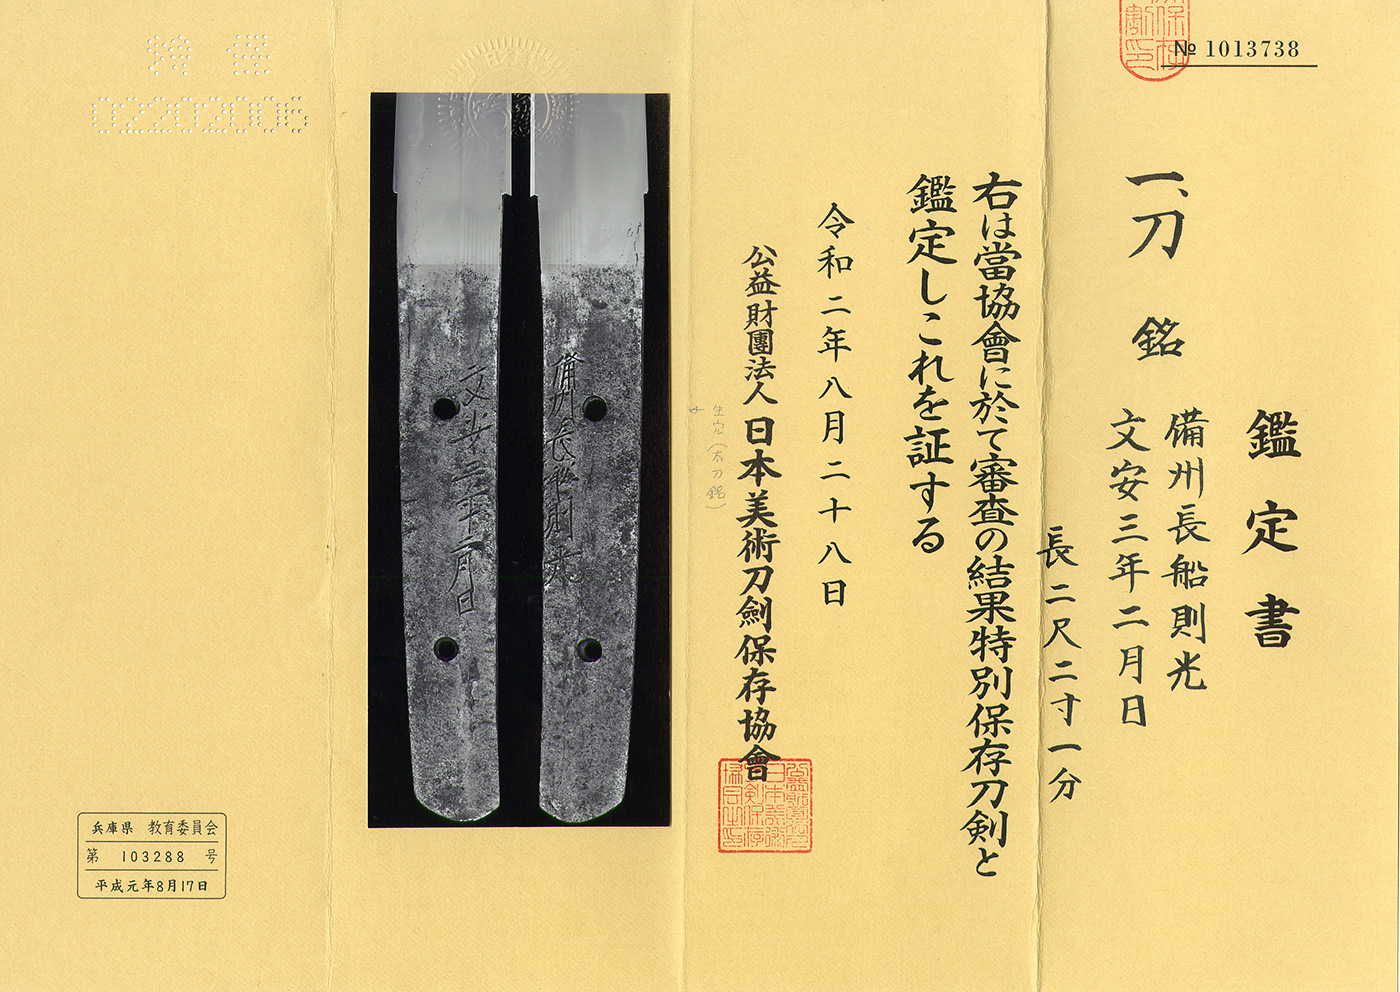 № 1013738
鑑定書
一、刀 銘
備州長船則光
文安三年二月日
長二尺二寸一分
右は當協會に於て審査の結果特別保存刀剣と
鑑定しこれを証する
令和二年八月二十八日
公益財團法人 日本美術刀劍保存協會
生穴(太刀銘)
備州長船則光
文安三年二月日
02202006
兵庫県 教育委員会
第 103288 号
平成元年8月17日